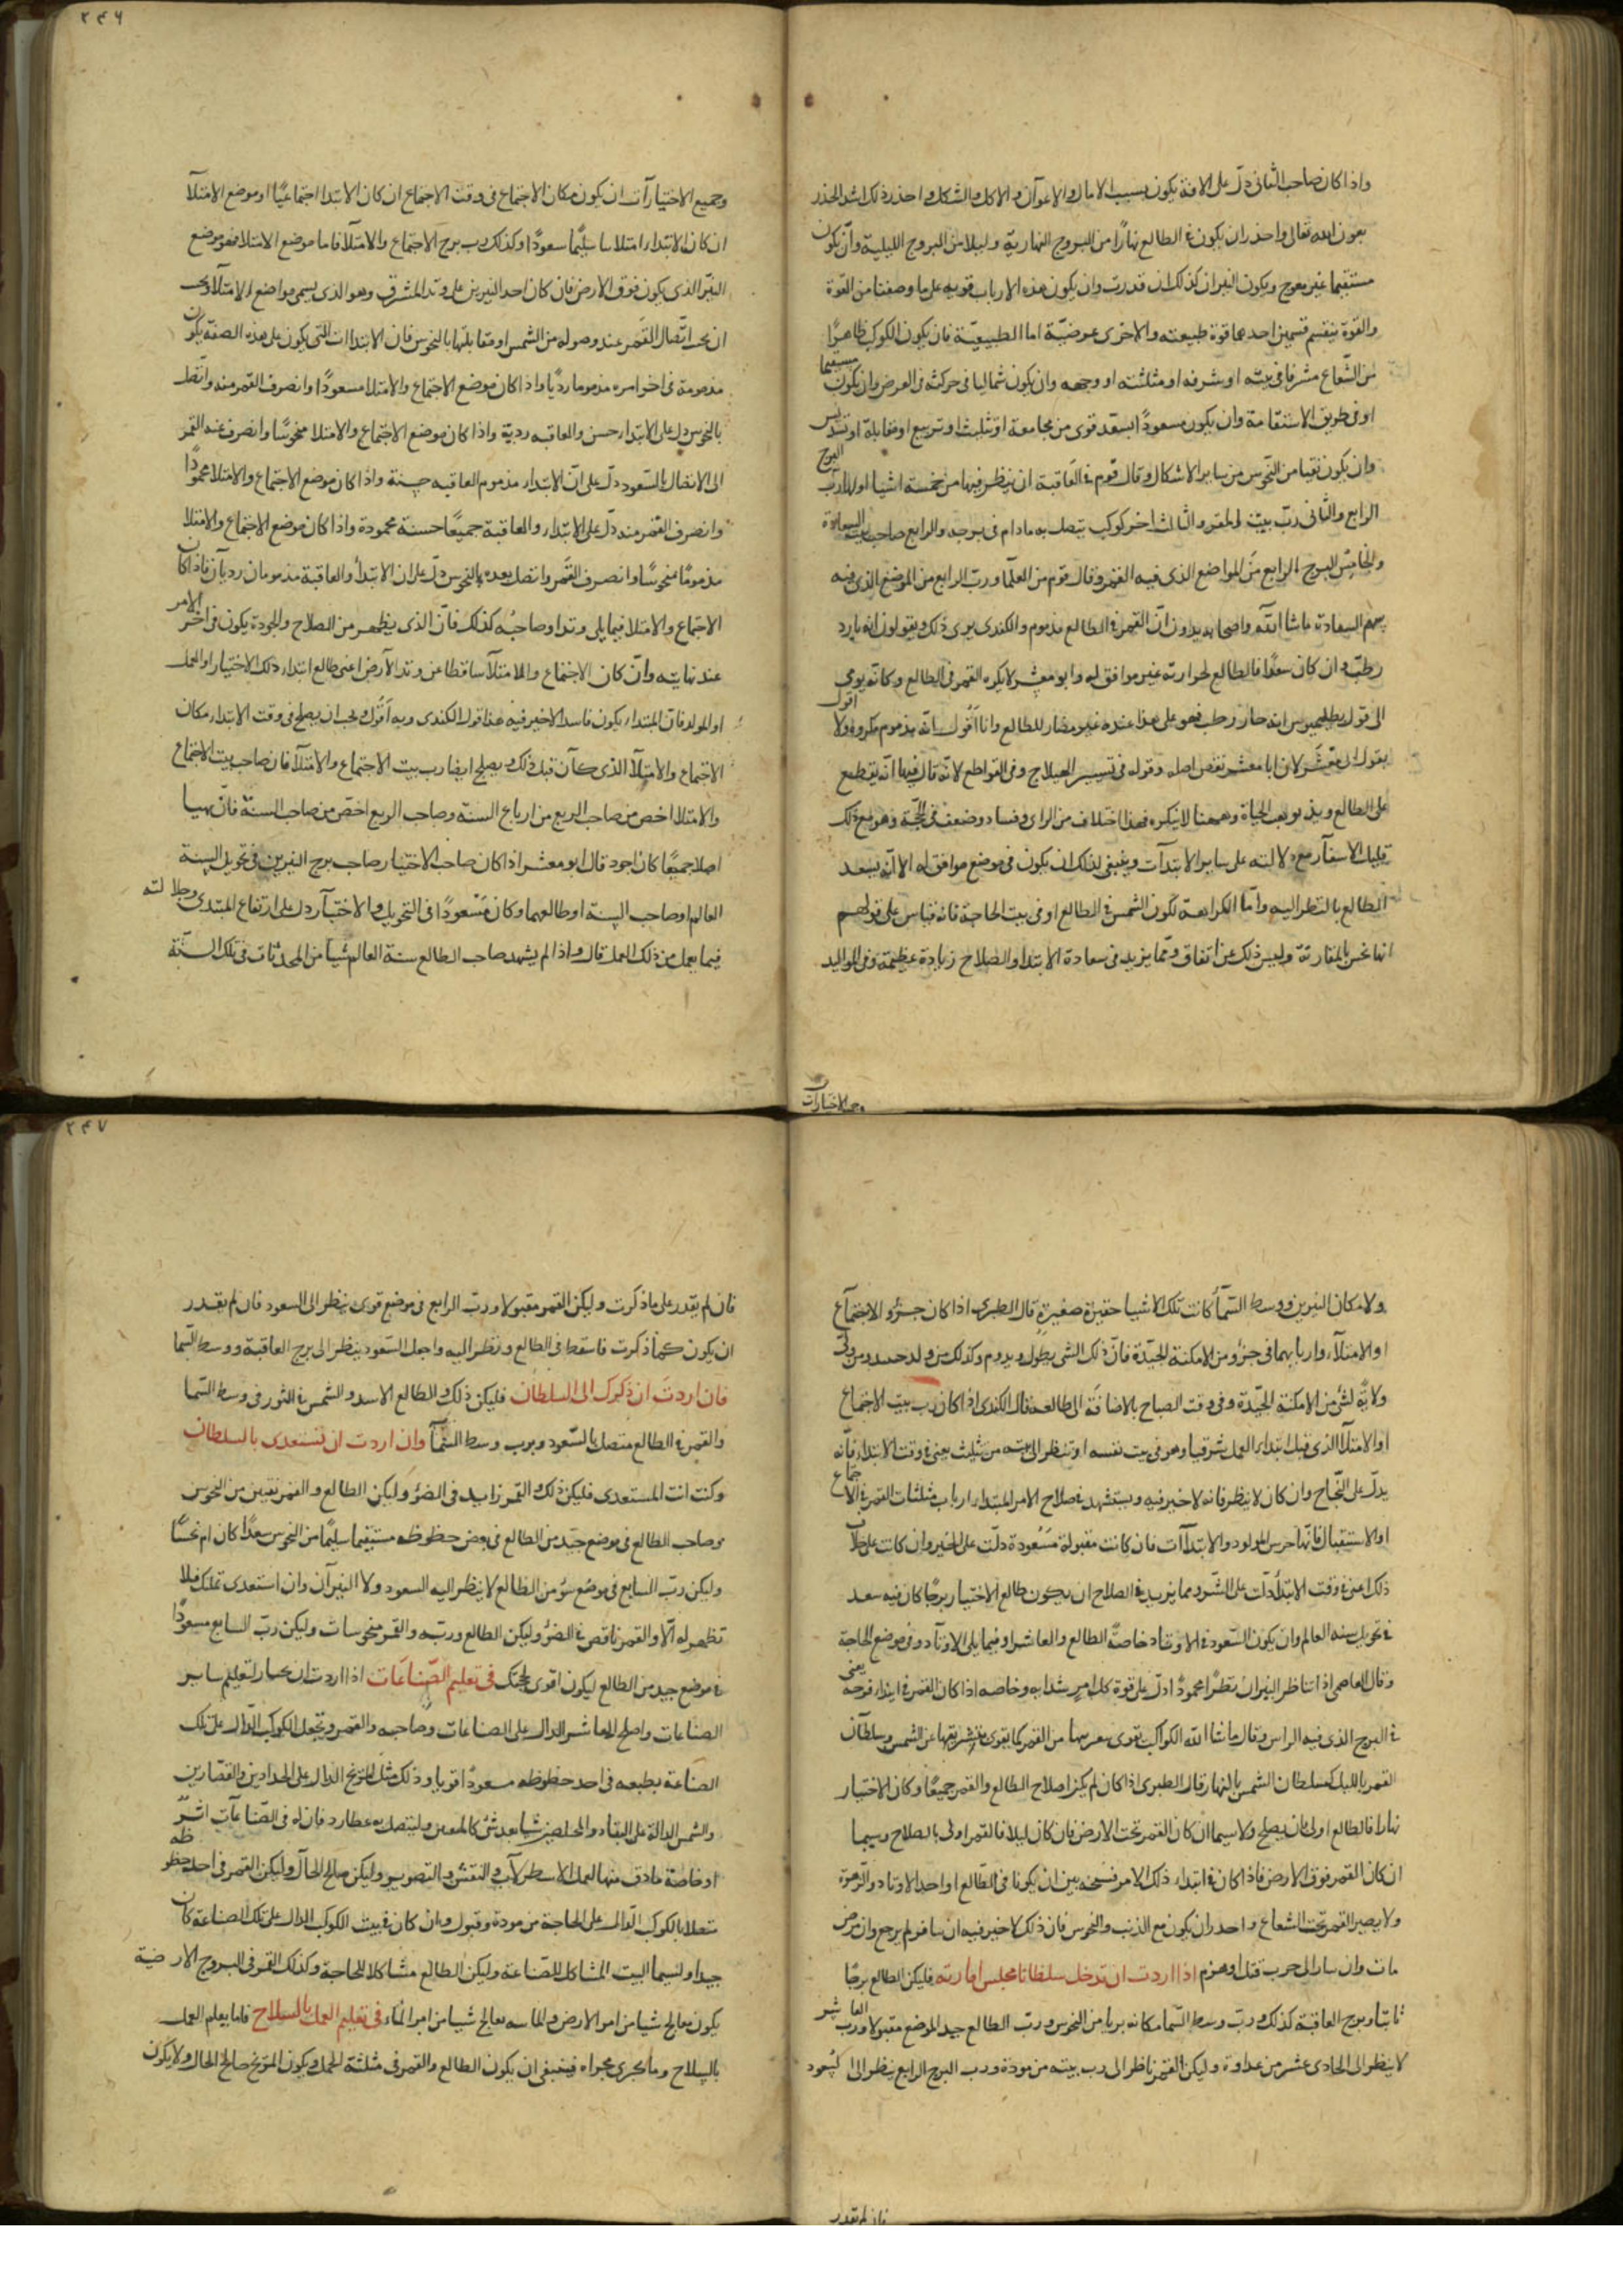 واذا كان صاحب الثانى دلّ على الافة يكون بسبب الامال والاعوان والاكل والشكل واحذر ذلك اشد الحذر
بعون الله تعالى واحذر ان يكون الطالع نهارًا من البروج النهارية وليلا من البروج الليلية وان يكون
مستقيما غير معوج ويكون النيران كذلك ان قدرت وان يكون هذه الارباب قوية على ما وصفنا من القوة
والقوة ينقسم قسمين احدهما قوة طبيعته والاخرى عرضيّة اما الطبيعيّة فان يكون الكوكب ظاهرًا
من الشعاع مشرقا فى بيته او شرفه او مثلثته او وجهه وان يكون شماليا فى حركته فى العرض وان يكون مستقيما
او فى طريق الاستقامة وان يكون مسعودًا بسعد قوى من مجامعة او تثليث او تربيع او مقابلة او تسديس
وان يكون نقيا من النحوس من ساير الاشكال وقال قوم فى العاقبة ان ينظر فيها من خمسة اشيا اولها رب البرج
الرابع والثانى ربّ بيت القمر والثالث اخر كوكب يتصل به مادام فى برجه والرابع صاحب بيت السعادة
والخامس البرج الرابع من المواضع الذى فيه القمر وقال قوم من العلما ورب الرابع من الموضع الذى فيه
سهم السعادة ما شا الله واصحابه يدون انّ القمر فى الطالع مذموم والكندى يرى ذلك ويقولون انه بارد
رطب وان كان سعدًا فالطالع لحرارته غير موافق له وابو معشر لا يكره القمر فى الطالع وكانه يومى
الى قول بطلميوس انه حار رطب فهو على هذا عنده غير مضار للطالع وانا اقول انه مذموم مكروه ولا اقول
بقول ابى معشر لان ابا معشر نقض اصله وقوله فى تسيير الهيلاج وفى القواطع لانه قال فيها انه يقطع
على الطالع ويذ بوهب الحياة وههنا لا ينكره فهذا اختلاف من الراى وفساد وضعف فى الحجّة وهو مع ذلك
دلالته على ساير الابتدآت وينبغى لذلك ان يكون فى موضع موافق له الا انّه يسعد
الطالع بالنظر اليه وامّا الكراهة لكون الشمس فى الطالع او فى بيت الحاجة فانه قياس على قولهم
انها نحس بالمقارنة وليس ذلك عن اتفاق ومّما يزيد فى سعادة الابتدا والصلاح زيادة عظيمة وفى المواليد
وجميع الاختيارآت
٢٤٦
وجميع الاختيارآت ان يكون مكان الاجتماع فى وقت الاجتماع ان كان الابتدا اجتماعيًا او موضع الامتلآ
ان كان الابتدا امتلاسا سليمًا سعودًا وكذلك رب برج الاجتماع والامتلآ فاما موضع الامتلا فهو موضع
النيّر الذى يكون فوق الارض فان كان احد النيرين على وتد المشرق وهو الذى يسمى مواضع الامتلآ ويجب
ان يحد اتّصال القمر عند وصوله من الشمس او مقابلتها بالنحوس فان الابتداات التى يكون على هذه الصفة يكون
مذمومة فى اخر امره مذموما رديا واذا كان موضع الاجتماع والامتلا مسعودًا وانصرف القمر منه واتّصل
بالنحوس دل على الابتدا حسن والعاقبه رديّة واذا كان موضع الاجتماع والامتلا منحوسًا وانصرف عنه القمر
الى الاتصال السعود دلّ على انّ الابتدا مذموم العاقبه حسنة واذا كان موضع الاجتماع والامتلا محمودًا
وانصرف القمر منه دلّ على الابتدا والعاقبة جميعًا حسنة محمودة واذا كان موضع الاجتماع والامتلا
مذمومًا منحوسًا وانصرف القمر واتصل بعده بالنحوس دلّ على ان الابتدأ والعاقبة مذمومان رديآن فاذا كان
الاجتماع والامتلا فيما يلى وتدا وصاحبه كذلك فانّ الذى يظهر من الصلاح والجودة يكون فى اخر الامر
عند نهايته وانّ كان الاجتماع والامتلآ ساقطا عن وتد الارض اعنى طالع ابتداء ذلك الاختيار او العمل
او المولد فانّ المبتدا يكون فاسدا لاخير فيه هذا قول الكندى وبه اقول ويجب ان يصلح فى وقت الابتدا مكان
الاجتماع والامتلآ الذى كآن قبل ذلك ويصلح ايضا رب بيت الاجتماع والامتلآ فان صاحب بيت الاجتماع
والامتلا اخص من صاحب الربع من ارباع السنة وصاحب الربع اخصّ من صاحب السنة فانّ تهيا
اصلاح جميعًا كان اجود قال ابو معشر اذا كان صاحب الاختيار صاحب برج النيرين فى تحويل السنة
العالم او صاحب السنة او طالعهما وكان مسعودًا فى التحويل والاختيآر دل على ارتفاع المبتدى وجلالته
فيما يعمل من ذلك العمل قال واذا لم يشهد صاحب الطالع سنة العالم شيا من المحدثات فى تلك السنة
ولا مكان النيرين ووسط السّمآ كانت تلك الاشيا حقيرة صغيرة قال الطبرى اذا كان جزؤ الاجتماع
او الامتلآ وارباٻهما فى جزؤ من الامكنة الجيّدة فانّ ذلك الشى يطول ويدوم وكذلك من ولد
ولاية لشى من الامكنة الجيّدة وفى وقت الصباح بالاضافة الى طالعه قال الكندى اذا كان رب بيت الاجتماع
او الامتلآ الذى قبل ابتداء العمل شرقيا وهو فى بيت نفسه او ينظر الى بيته من تثليث يعنى فى وقت الابتداء فانّه
يدلّ على النّجاح وان كان لا ينظر فانه لا خير فيه ويستشهد فى صلاح الامر المبتدا ارباب مثلثات القمر فى الاجتماع
او الاستقبال فانّها حرس المولود والابتدآات فان كانت مقبولة مسعودة دلّت على الخير وان كانت على خلاف
ذلك اعنى فى وقت الابتدأ دلّت على الشّر ومما يزيد فى الصلاح ان يكون طالع الاختيار برجًا كان فيه سعد
فى تحويل سنه العالم وان يكون السّعود فى الاوتاد خاصّة الطالع والعاشر او فيما يلى الاوتآد وفى موضع الحاجة
وقال العاصمى اذا تناظر النيران نظرًا محمودًا دلّ على قوة كل امر يبتدا به وخاصه اذا كان القمر فى ابتداء فرحه يعنى
فى البرج الذى فيه الراس وقال ماشا الله الكواكب يقوى من القمر كما يقوى بتشريقها عن الشمس وسلطآن
القمر بالليل كسلطان الشمس بالنهار قال الطبرى اذا كان لم يكن اصلاح الطالع والقمر جميعًا وكان الاختيار
نهارا فالطالع اولى ان يصلح ولا سيما ان كان القمر تحت الارض فان كان ليلا فالقمر اولى بالصلاح وسيما
ان كان القمر فوق الارض فاذا كان فى ابتداء ذلك الامر ان يكونا فى الطالع او احد الاوتاد والزهرة
ولا يصير القمر تحت الشعاع واحذر ان يكون مع الذنب والنحوس فان ذلك لا خير فيه ان سافر لم يرجع وان مرض
مات وان سار الى حرب قتل او هزم اذا اردت ان تدخل سلطانا مجلس امارته فليكن الطالع برجًا
ثابتا وبرج العاقبة كذلك ورب وسط السّما مكانه بريا من النحوس ورب الطالع جيد الموضع مقبولا ورب العاشر
لا ينظر الى الحادى عشر من عداوة وليكن القمر ناظر الى رب بيته من مودة ورب البرج الرابع ينظر الى السّعود
فان لم تقدر
٢٤٧
فان لم يقدر على ما ذكرت وليكن القمر مقبولا ورب الرابع فى موضع قوى ينظر الى السعود فان لم يقدر
ان يكون كما ذكرت فاسقط فى الطالع ونظر اليه واجعل السّعود ينظر الى برج العاقبة ووسط السّما
فان اردت ان ذكرك الى السلطان فليكن ذلك والطالع الاسد والشمس فى الثور فى وسط السّما
والقمر فى الطالع متصل بالسّعود وبرب وسط السّمآ وان اردت ان تستعدى بالسلطان
وكنت انت المستعدى فليكن ذلك والقمر زايد فى الضؤ وليكن الطالع والقمر نقيين من النحوس
وصاحب الطالع فى موضع جيّد من الطالع فى بعض حظوظه مستقيما سليمًا من النحوس سعدًا كان ام نحسًا
وليكن ربّ السابع فى موضع سؤ من الطالع لا ينظر اليه السعود ولا النيرآن وان استعدى عليك فلا
تظهر له الّا والقمر ناقص فى الضؤ وليكن الطالع وربّه والقمر منحوسات وليكن ربّ السابع مسعودًا
فى موضع جيد من الطالع ليكون اقوى لحجتك فى تعليم الصّناعات اذا اردت ان تختار لتعليم ساير
الصناعات واصلح العاشر الدال على الصناعات وصاحبه والقمر وتجعل الكوكب الدّال على تلك
الصناعة بطبعه فى احد حظوظه مسعودًا قويا وذلك مثل المريخ الدال على الحدادين والقصّارين
والشمس الدالة على وليتصل به عطارد فان له فى الصّناعآت اثرّ
او خاصة ما دق منها لعمل الاسطرلآب والنقش والتصوير وليكن صالح الحآل وليكن القمر فى احد حظوظه
متصلا بالكوكب الدّال على الحاجة من مودة وقبول وان كان فى بيت الكوكب الدال على تلك الصناعة كان
جيدا ولسيما البيت المشاكل للصّناعة وليكن الطالع مشاكلا للحاجة وكذلك القمر فى البروج الارضية
يكون معالج شيا من امر الارض والمايىه يعالج شيا من امر المآء فى تعليم العمل بالسلاح فاما يعلم العمل
بالسلاح وما يجرى مجراه فينبغى ان يكون الطالع والقمر فى مثلثة الحمل ويكون المريخ صالح الحال ولا يكون